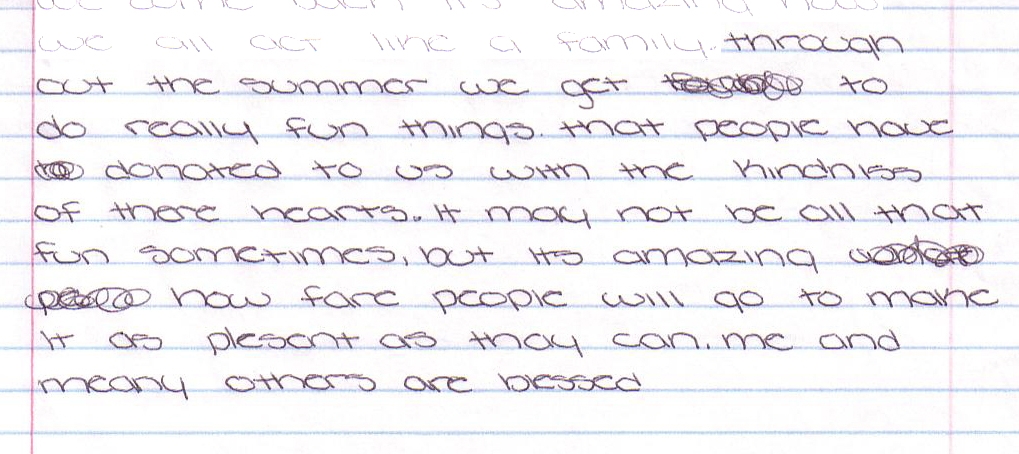 we come back it's amazing how
we all act like a family. through
out the summer we get to
do really fun things. that people have
donated to us with the kindniss
of there hearts. It may not be all that
fun sometimes, but its amazing
how fare people will go to make
it as plesent as thay can. me and
meany others are blessed